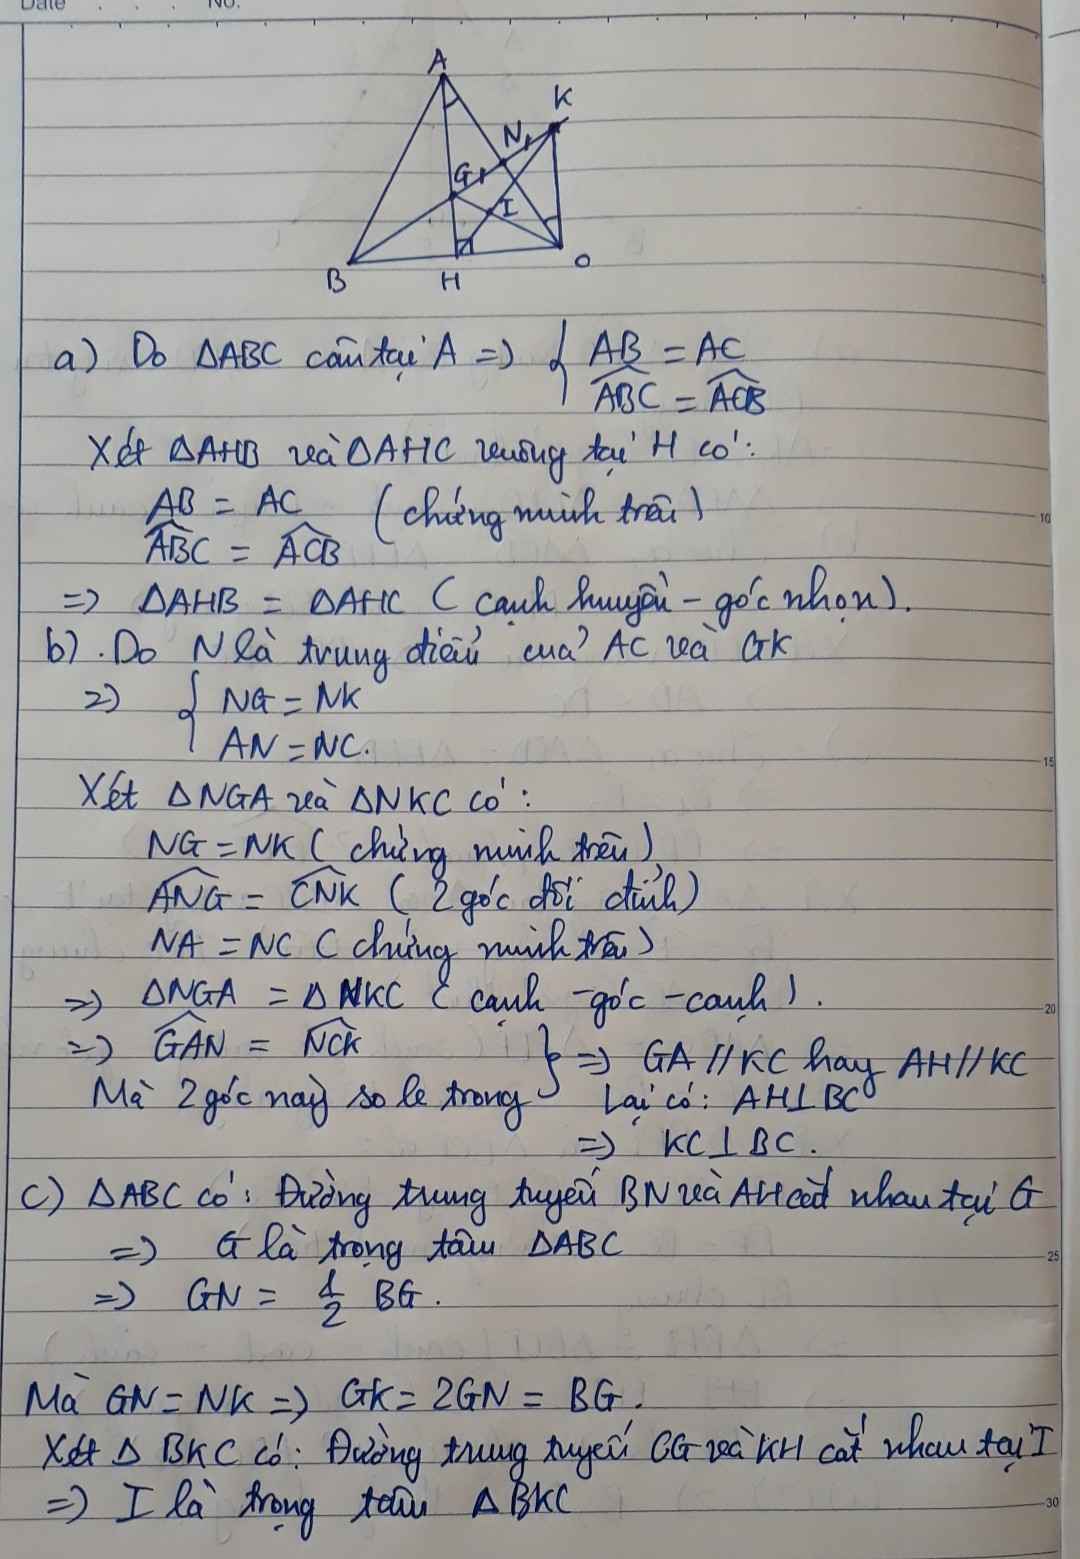 Date . . . No.
A
K
N
G
I
B
H
C
a) Do ΔABC cân tại A => { AB = AC
ABC = ACB
Xét ΔAHB và ΔAHC vuông tại H có:
AB = AC (chứng minh trên)
ABC = ACB
=> ΔAHB = ΔAHC (cạnh huyền - góc nhọn).
10
b). Do N là trung điểm của AC và GK
=> { NG = NK
AN = NC.
15
Xét ΔNGA và ΔNKC có:
NG = NK (chứng minh trên)
ANG = CNK (2 góc đối đỉnh)
NA = NC (chứng minh trên)
=> ΔNGA = ΔNKC (cạnh - góc - cạnh).
20
=> GAN = NCK } => GA // KC hay AH // KC
Mà 2 góc này so le trong Lại có: AH ⊥ BC
=> KC ⊥ BC.
c) ΔABC có: Đường trung tuyến BN và AH cắt nhau tại G
=> G là trọng tâm ΔABC
25
=> GN = 1/2 BG.
Mà GN = NK => GK = 2GN = BG.
Xét Δ BKC có: Đường trung tuyến CG và KH cắt nhau tại I
=> I là trọng tâm ΔBKC
30